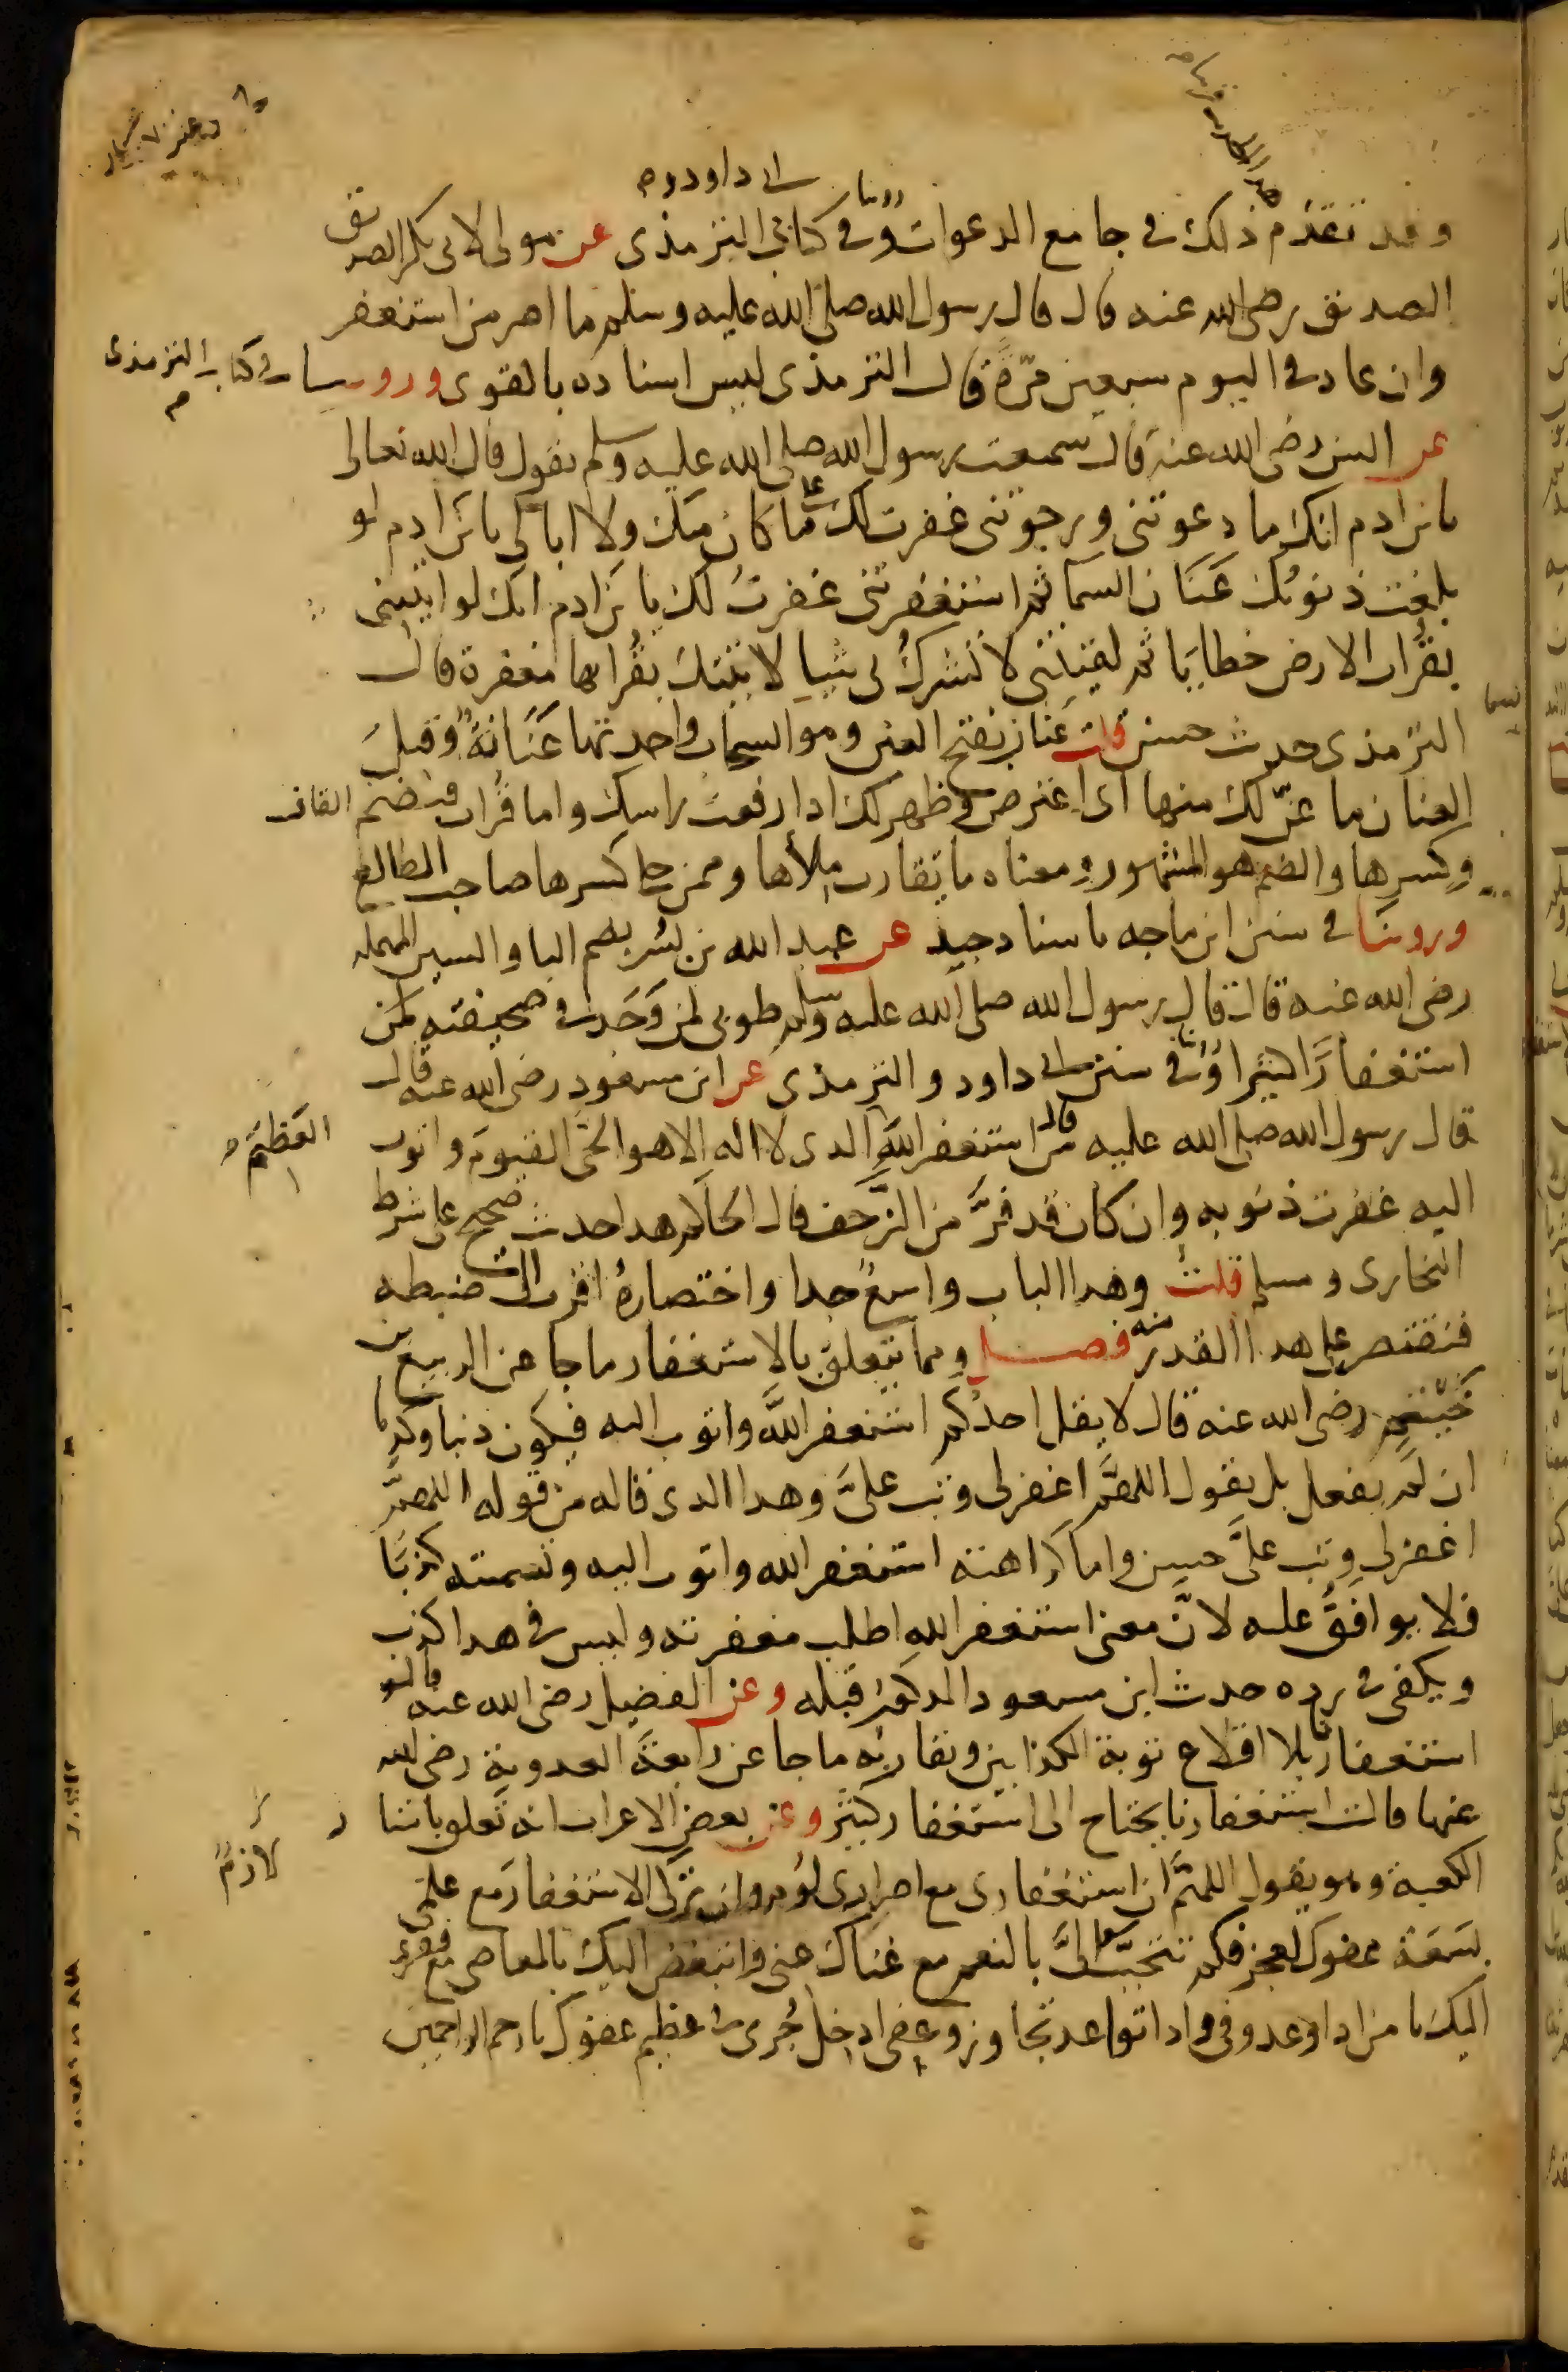 ابى داود و
وقد تقدم ذلك في جامع الدعوات وروينا في كتابي الترمذي عن مولى لابي بكر الصديق
الصديق رضي الله عنه قال قال رسول الله صلى الله عليه وسلم ما اصر من استغفر
وان عاد في اليوم سبعين مرّةً قال الترمذي ليس اسناده بالقوى وروينا في كتاب الترمذي
عن انس رضي الله عنه قال سمعت رسول الله صلى الله عليه وسلم يقول قال الله تعالى
يابن ادم انك ما دعوتنى ورجوتنى غفرت لك على ما كان منك ولا ابالي يابن ادم لو
بلغت ذنوبُك عَنَان السما ثم استغفرتنى غفرتُ لك يابن ادم انك لو اتيتني
بقُراب الارض خطايَا ثم لقيتني لا تشركُ بى شيا لاتيتك بقُرابها مغفرة قال
الترمذي حديث حسن قلت عَنان بفتح العين وهو السحاب واحدتها عَنَانَةٌ وقيل
العنان ما عنّ لك منها اى اعترض وظهر لك اذا رفعت راسك واما قُراب فبضم القاف
وكسرها والضم هو المشهور ومعناه ما يقارب ملأها وممن حكا كسرها صاحب المطالع
وروينا في سنن ابن ماجه باسناد جيد عن عبد الله بن بُسْر بضم البا والسين المهملة
رضي الله عنه قال قال رسول الله صلى الله عليه وسلم طوبى لمن وَجَدَ في صحيفته
استغفارًا كثيرا وروينا في سنن ابى داود والترمذي عن ابن مسعود رضي الله عنه قال
قال رسول الله صلى الله عليه من قال استغفر اللهَ الذي لا اله الا هو الحيَّ القيومَ واتوب
العَظِيْمَ
اليه غفرت ذنوبه وان كان قد فرَّ من الزَّحف قال الحاكم هذا حديث صحيح على شرط
البخارى ومسلم قلتُ وهذا الباب واسعٌ جدا واختصارهُ اقرب الى ضبطه
فنقتصر على هذا القدر منه فصل ومما يتعلق بالاستغفار ما جا عن الربيع بن
خُثيم رضي الله عنه قال لا يقل احدُكم استغفر اللَّه واتوب اليه فيكون ذنبا وكذبا
ان لَم يفعل بل يقول اللهمَّ اغفر لى وتب علىَّ وهذا الذي قاله من قوله اللهمَّ
اغفر لى وتب علىَّ حسن واما كراهته استغفر الله واتوب اليه وتسميته كذبًا
فلا يوافَقُ عليه لانَّ معنى استغفر اللهِ اطلب مغفرته وليس في هذا كذب
ويكفي في رده حديث ابن مسعود المذكورُ قبله وعن الفضيل رضي الله عنه قال
استغفارٌ بلا اقلاع توبة الكذابين ويقاربُه ما جا عن رابعةَ العدوية رضي الله
عنها قالت استغفارنا يحتاج الى استغفار كثير وعن بعض الاعراب انه تَعلق باستار
الكعبة وهو يقول اللهمَّ ان استغفاري مع اصرارى لؤم وان تركى الاستغفارَ مع علمى
بسَعَة عفوك لعجز فكم تتحبّبُ الىَّ بالنعم مع غناك عنى واتبغض اليك بالمعاصى مع فقرى
اليك يا من اذا وعد وفى واذا تواعد تجاوز وعفى ادخل جُرمى في عظيم عفوك يا ارحم الراحمين